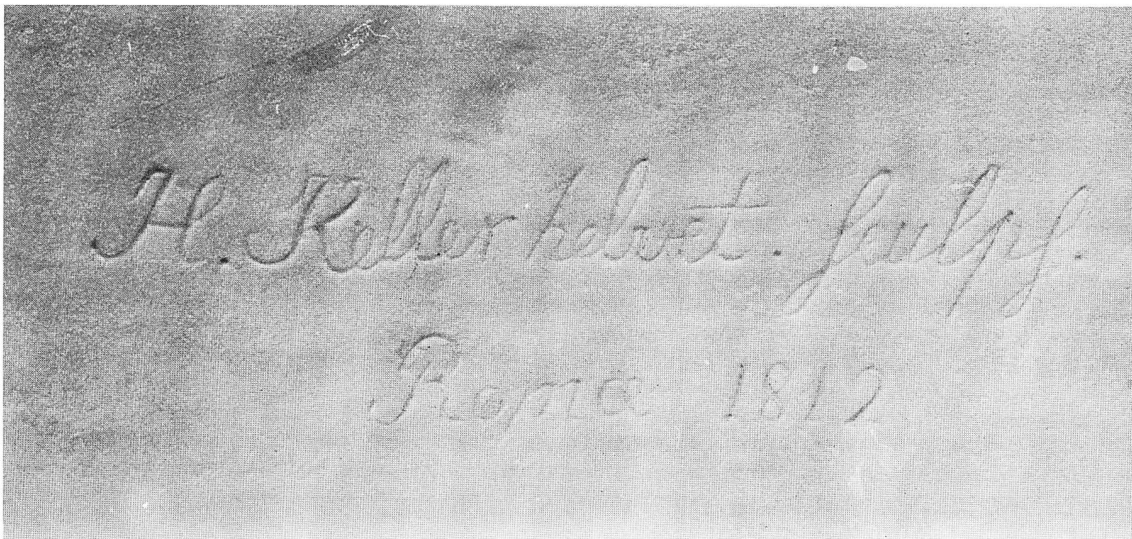 H. Keller helvet. ſculpſ.
Roma 1812